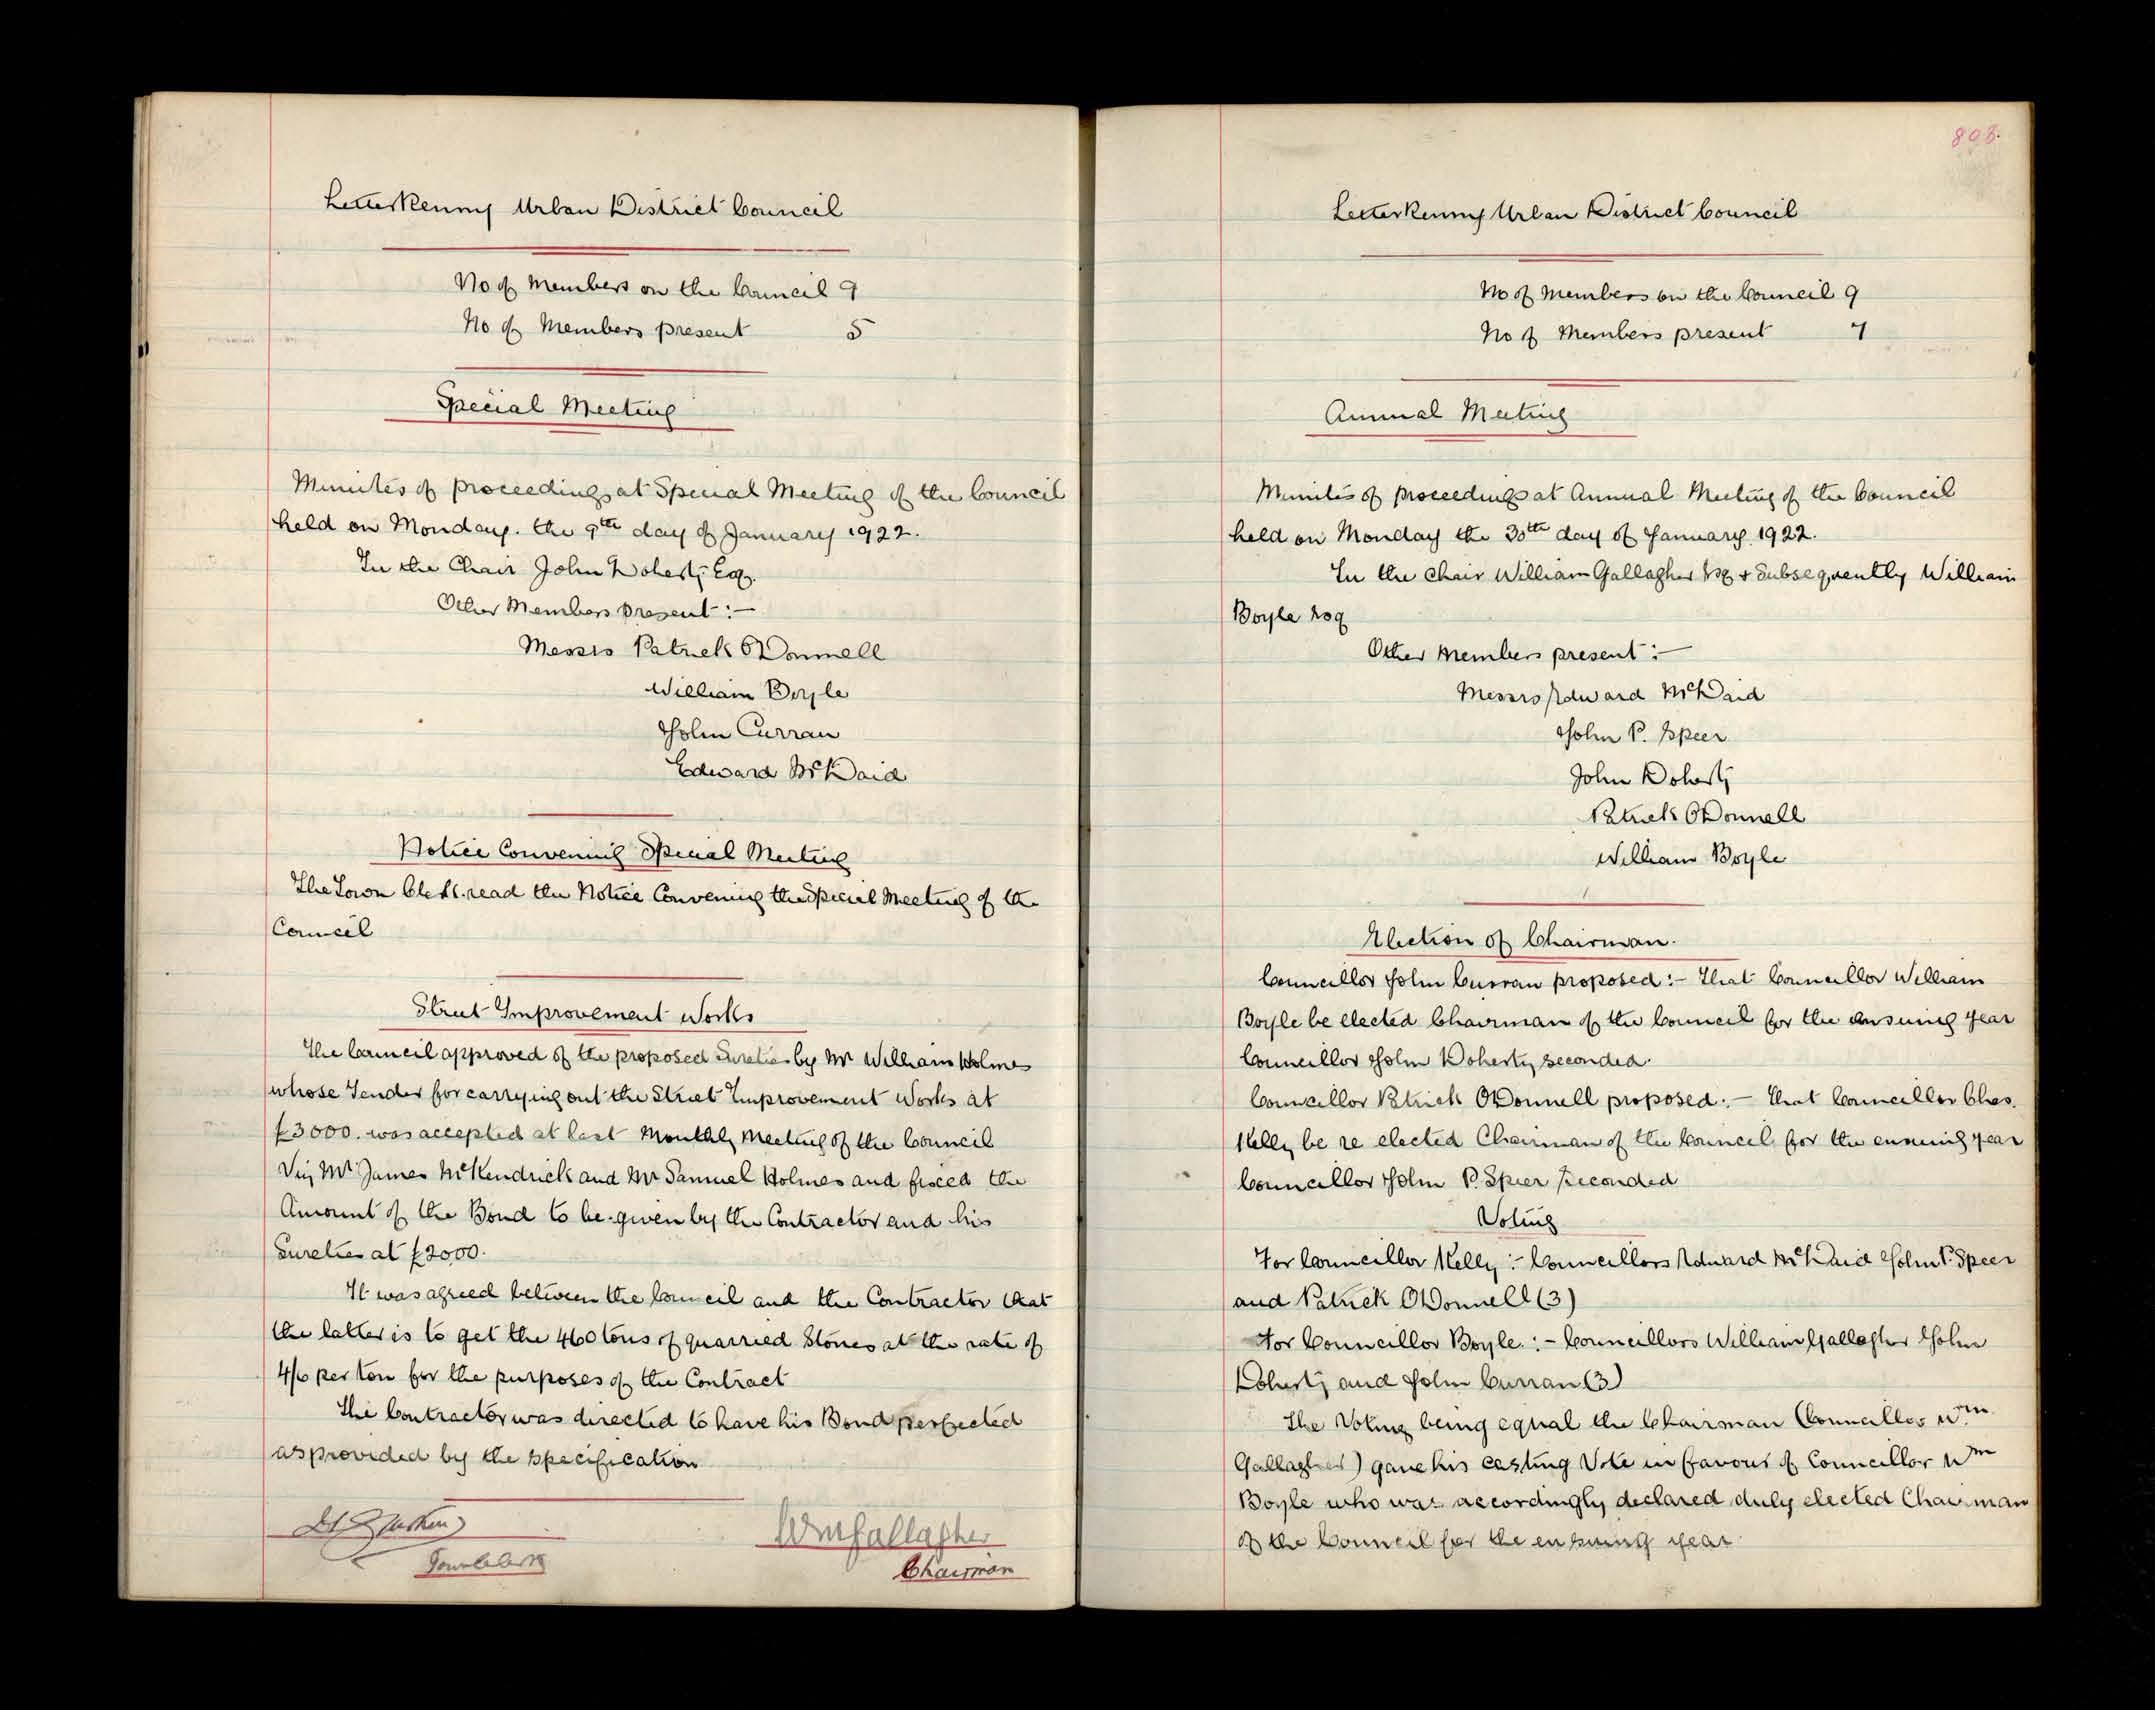 Letterkenny Urban District Council
No of Members on the Council 9
No of Members present 5
Special Meeting
Minutes of proceedings at Special Meeting of the Council
held on Monday. the 9th day of January 1922.
In the Chair John Doherty Esq.
Other Members present :-
Messrs Patrick O'Donnell
William Boyle
John Curran
Edward McDaid
Notice Convening Special Meeting
The Town Clerk read the Notice Convening the Special Meeting of the
Council
Street Improvement Works
The Council approved of the proposed Sureties by Mr William Holmes
whose Tender for carrying out the Street Improvement Works at
£3000. was accepted at last Monthly Meeting of the Council
Viz Mr James McKendrick and Mr Samuel Holmes and fixed the
Amount of the Bond to be given by the Contractor and his
Sureties at £2000.
It was agreed between the Council and the Contractor that
the latter is to get the 460 tons of quarried Stones at the rate of
4/6 per ton for the purposes of the Contract
The Contractor was directed to have his Bond perfected
as provided by the specification
Town Clerk
Wm Gallagher
Chairman
808.
Letterkenny Urban District Council
No of Members on the Council 9
No of Members present 7
Annual Meeting
Minutes of proceedings at Annual Meeting of the Council
held on Monday the 30th day of January 1922.
In the Chair William Gallagher Esq & Subsequently William
Boyle Esq
Other Members present :-
Messrs Edward McDaid
John P. Speer
John Doherty
Patrick O'Donnell
William Boyle
Election of Chairman.
Councillor John Curran proposed :- That Councillor William
Boyle be elected Chairman of the Council for the ensuing year
Councillor John Doherty seconded.
Councillor Patrick O'Donnell proposed :- That Councillor Chas.
Kelly be re elected Chairman of the Council for the ensuing year
Councillor John P. Speer seconded
Voting
For Councillor Kelly :- Councillors Edward McDaid John P. Speer
and Patrick O'Donnell (3)
For Councillor Boyle :- Councillors William Gallagher John
Doherty and John Curran (3)
The Voting being equal the Chairman (Councillor Wm
Gallagher) gave his casting Vote in favour of Councillor Wm
Boyle who was accordingly declared duly elected Chairman
of the Council for the ensuing year